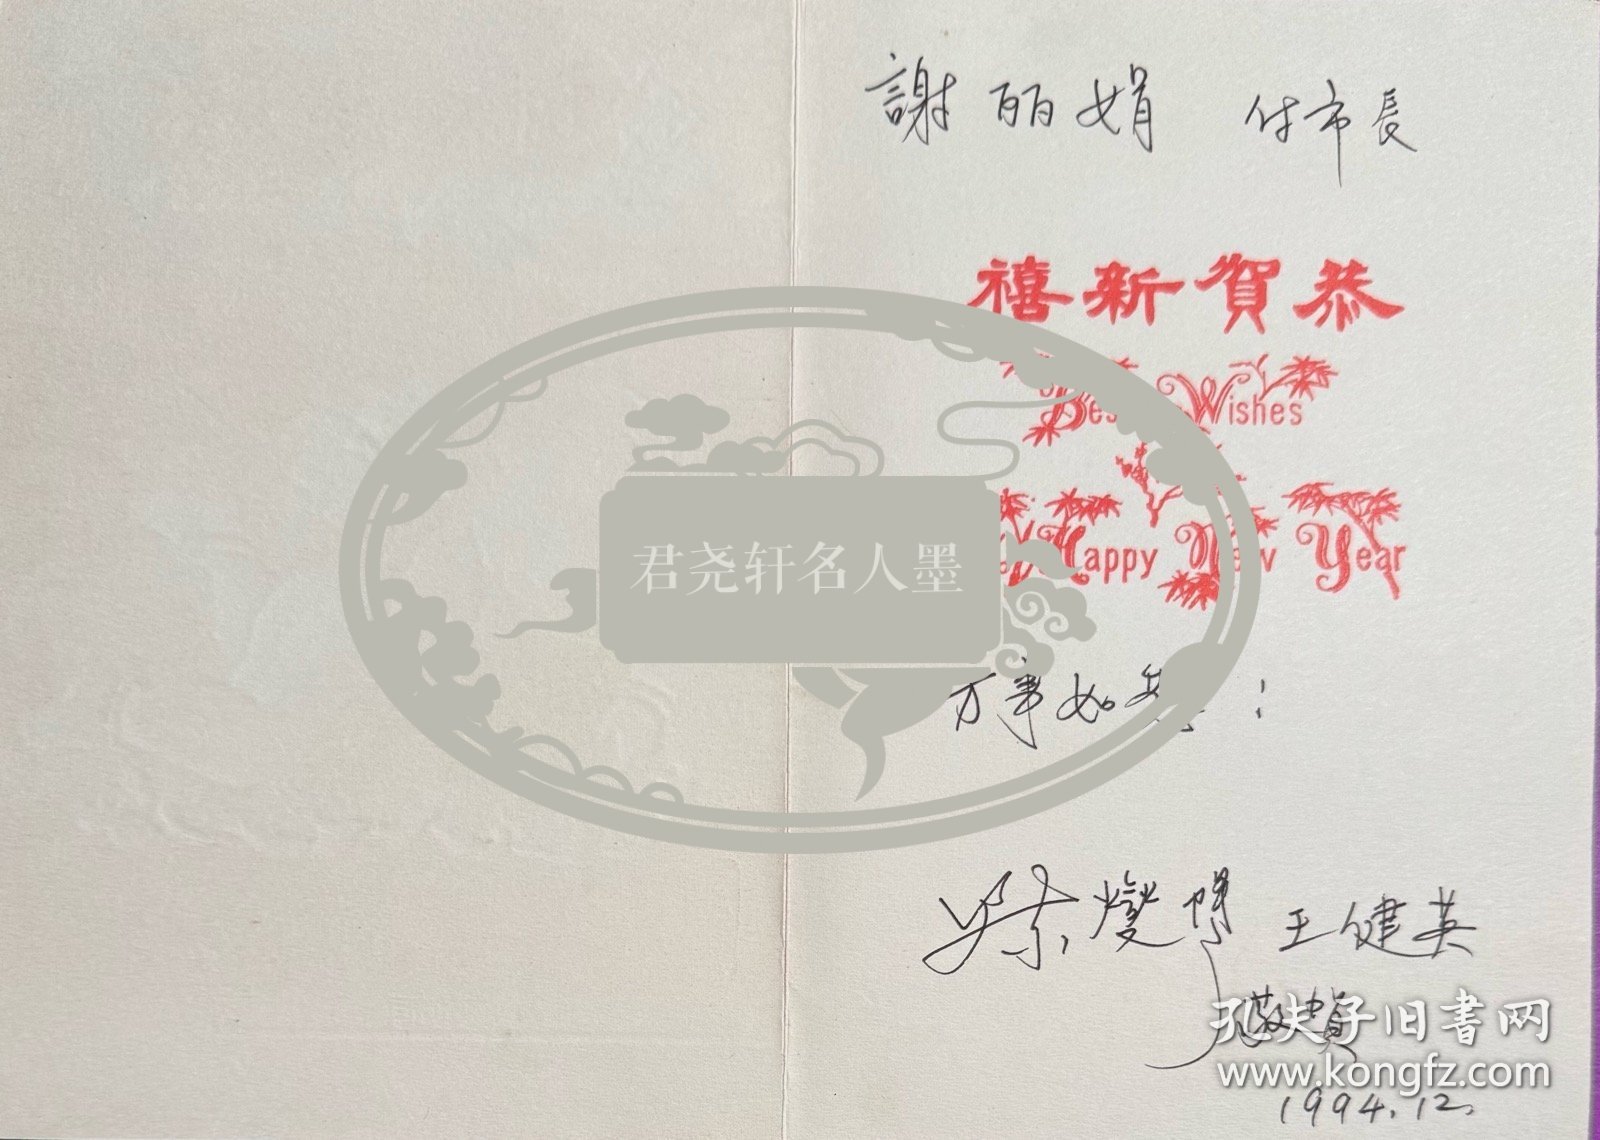 謝丽娟 付市長
禧新賀恭
Best Wishes
Happy New Year
君尧轩名人墨
万事如意!
梁燮 王健英
敬賀
孔夫子旧书网
www.kongfz.com
1994.12.